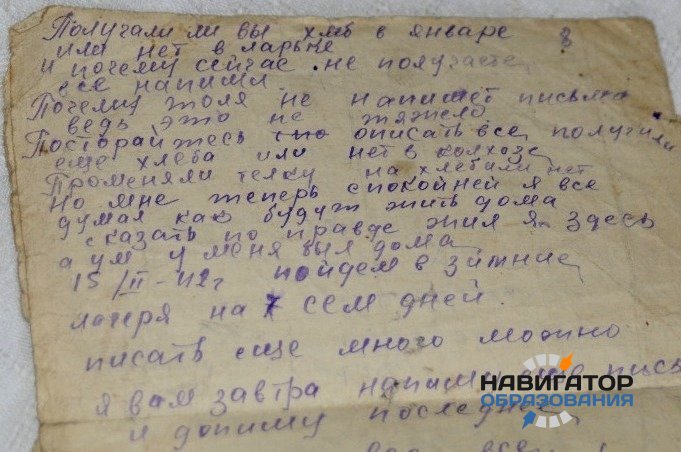 Получали ли вы хлеб в январе
или нет в ларьке
и почему сейчас не получаете
все напиши.
Почему толя не напишет письма
ведь это не тяжело
Посторайтесь описать все, получили
еще хлеба или нет в колхозе
Променяли телку на хлебали нет
Но мне теперь спокойней я все
думал как будут жить дома
сказать по правде жил я здесь
а ум у меня был дома
15/II-42г пойдем в зимние
лагеря на 7 сем дней.
писать еще много можно
я вам завтра напишу еще пись
и допишу последнее
НАВИГАТОР
ОБРАЗОВАНИЯ